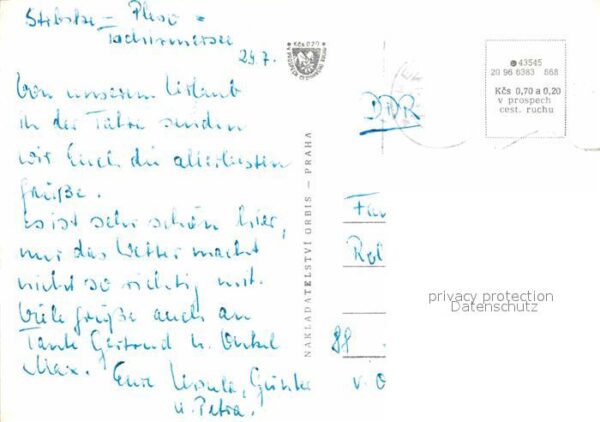 Strbske - Pleso =
Tschirmersee
24.7.
Von unserem Urlaub
in der Tatra senden
wir Euch die allerbesten
Grüße.
Es ist sehr schön hier,
nur das Wetter macht
nicht so richtig mit.
Viele Grüße auch an
Tante Gertrud u. Onkel
Max. Eure Ursula, Günter
u. Petra.
NAKLADATELSTVÍ ORBIS — PRAHA
Kčs 0,20
43545
20 96 6383 868
Kčs 0,70 a 0,20
v prospech
cest. ruchu
DDR
Rol
privacy protection
Datenschutz